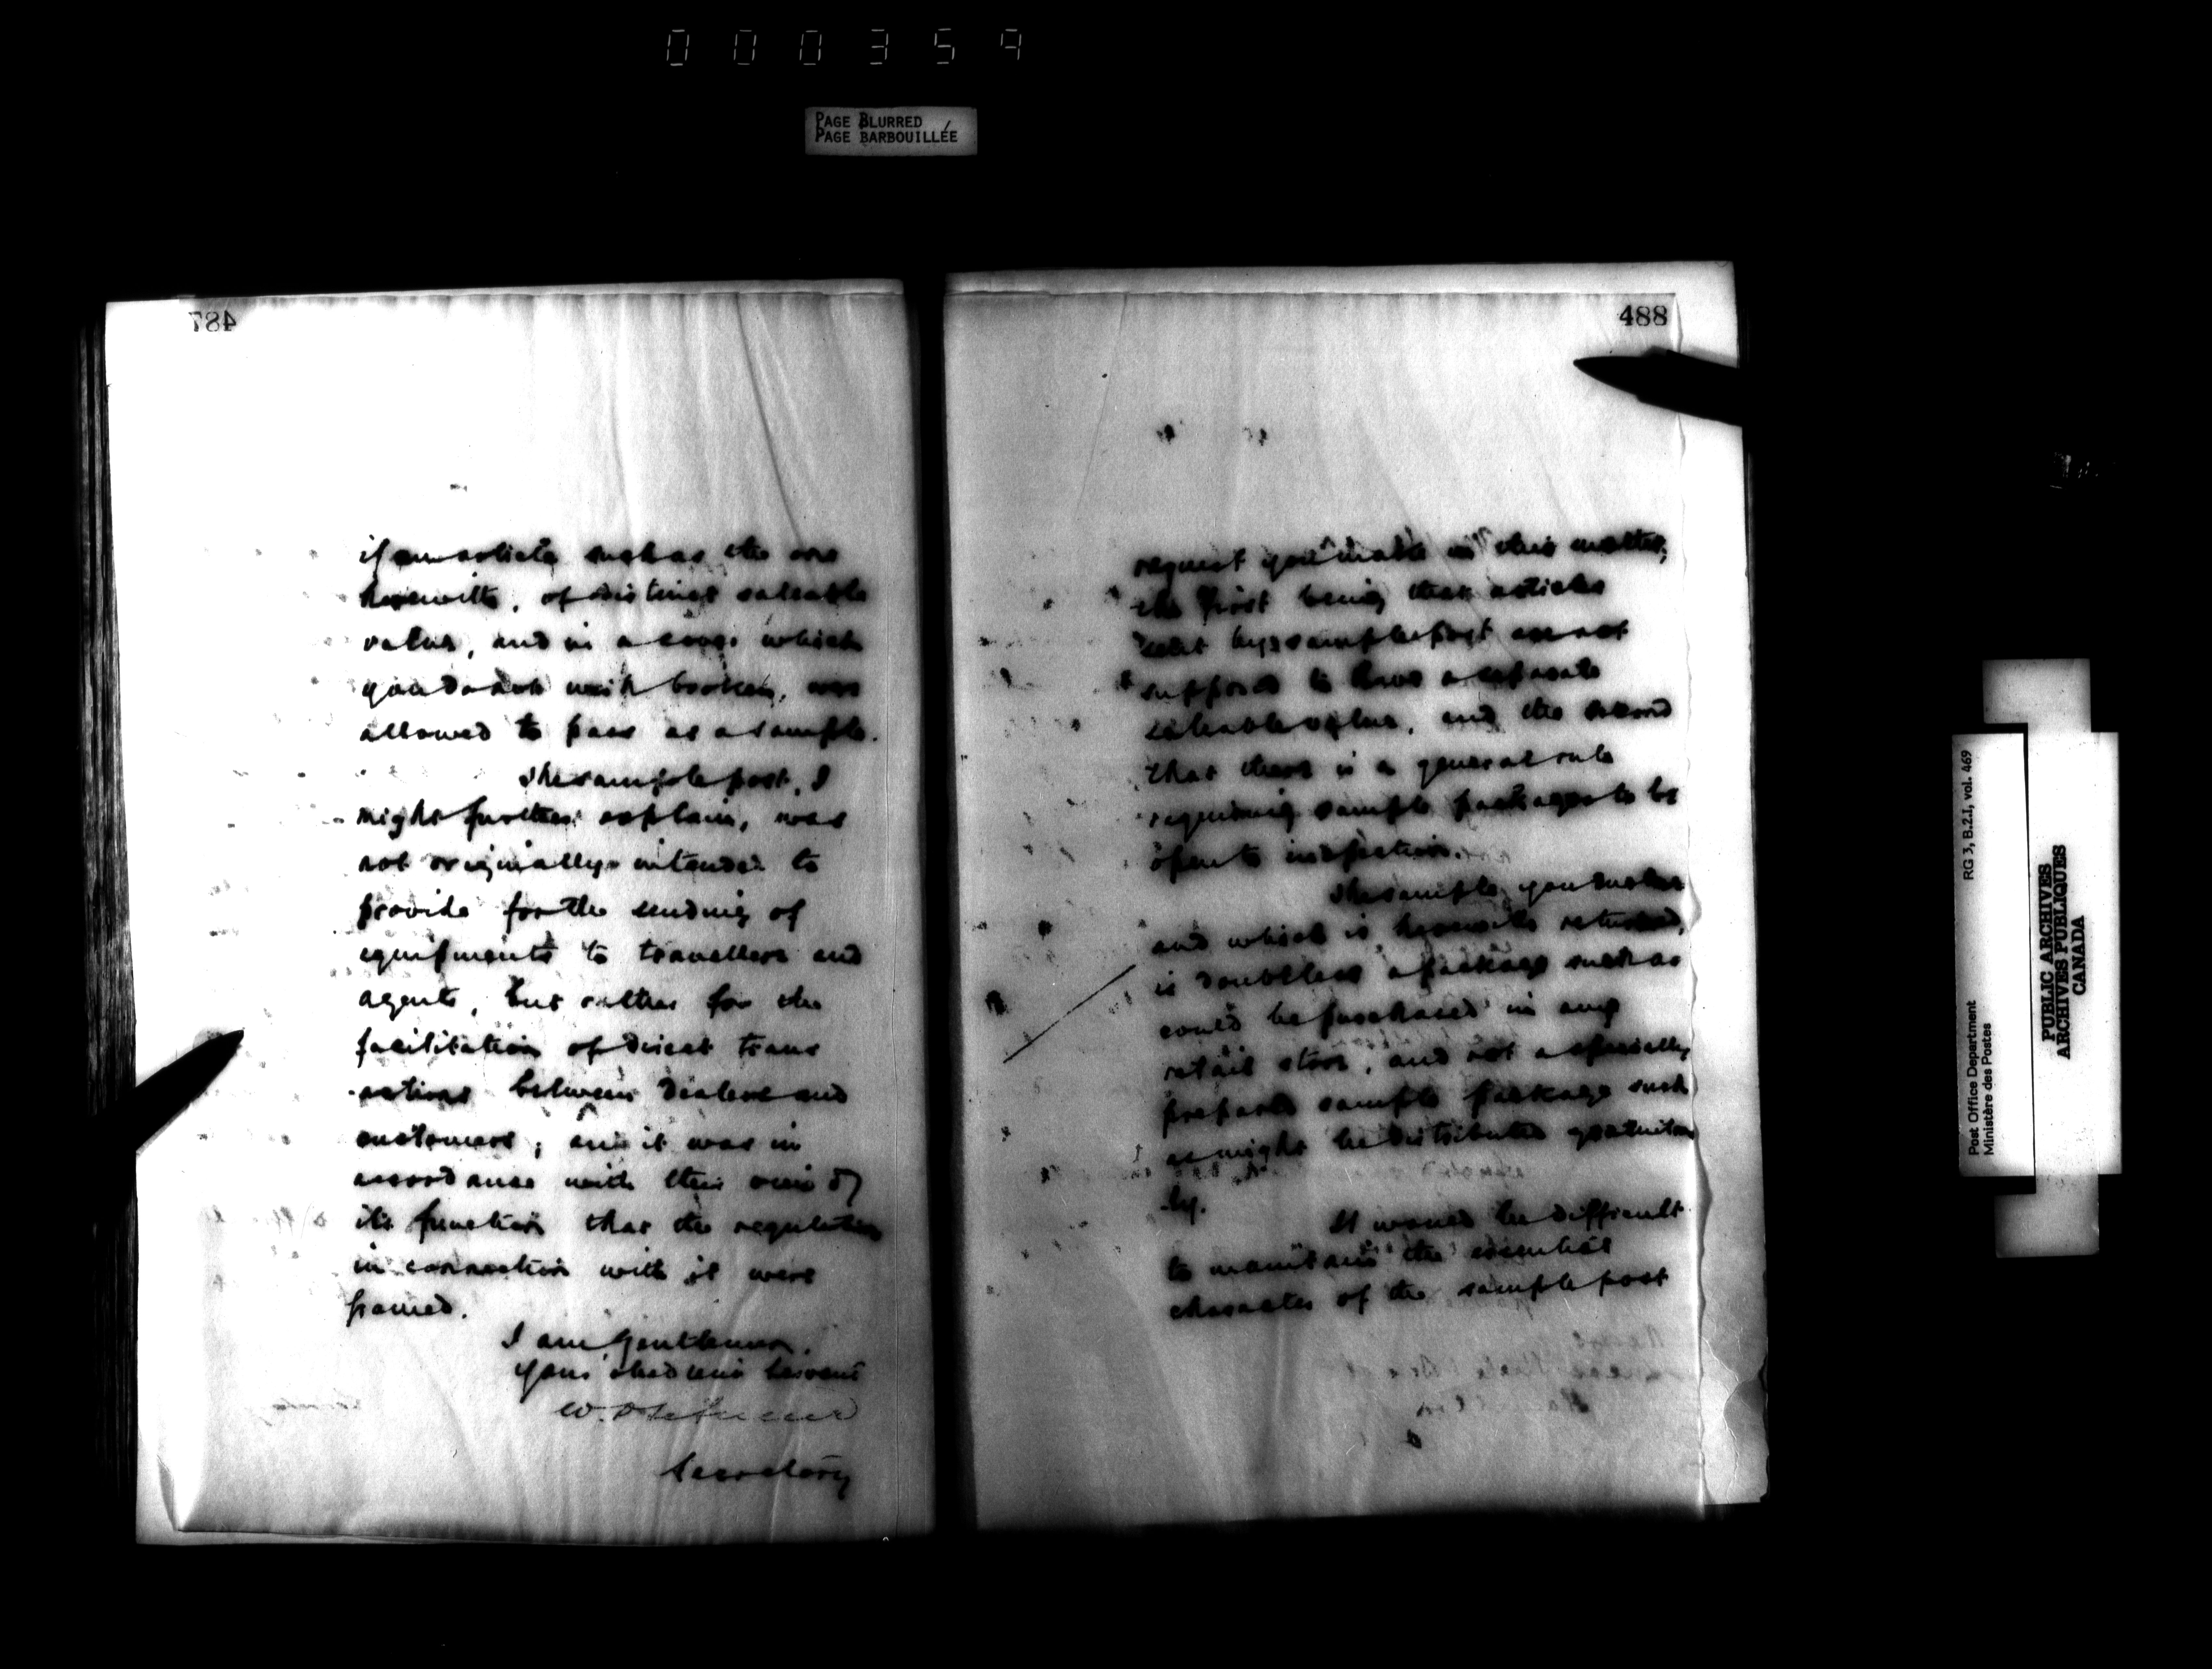 000359
PAGE BLURRED
PAGE BARBOUILLÉE
487
if an article such as the one
herewith, of distinct saleable
value, and in a cover which
you do not wish broken, were
allowed to pass as a sample.
The sample post, I
might further explain, was
not originally intended to
provide for the sending of
equipments to travellers and
agents, but rather for the
facilitation of direct trans
-actions between dealers and
customers; and it was in
accordance with this view of
its function that the regulations
in connection with it were
framed.
I am, Gentlemen,
Your obedient Servant
Secretary
488
request you make in this matter,
the first being that articles
sent by sample post are not
supposed to have a separate
saleable value, and the second
that there is a general rule
requiring sample packages to be
open to inspection.
The sample you enclose
and which is herewith returned,
is doubtless a package such as
could be purchased in any
retail store, and not a specially
prepared sample package such
as might be distributed gratuitous
-ly.
It would be difficult
to maintain the essential
character of the sample post
RG 3, B.2.I, vol. 469
Post Office Department
Ministère des Postes
PUBLIC ARCHIVES
ARCHIVES PUBLIQUES
CANADA